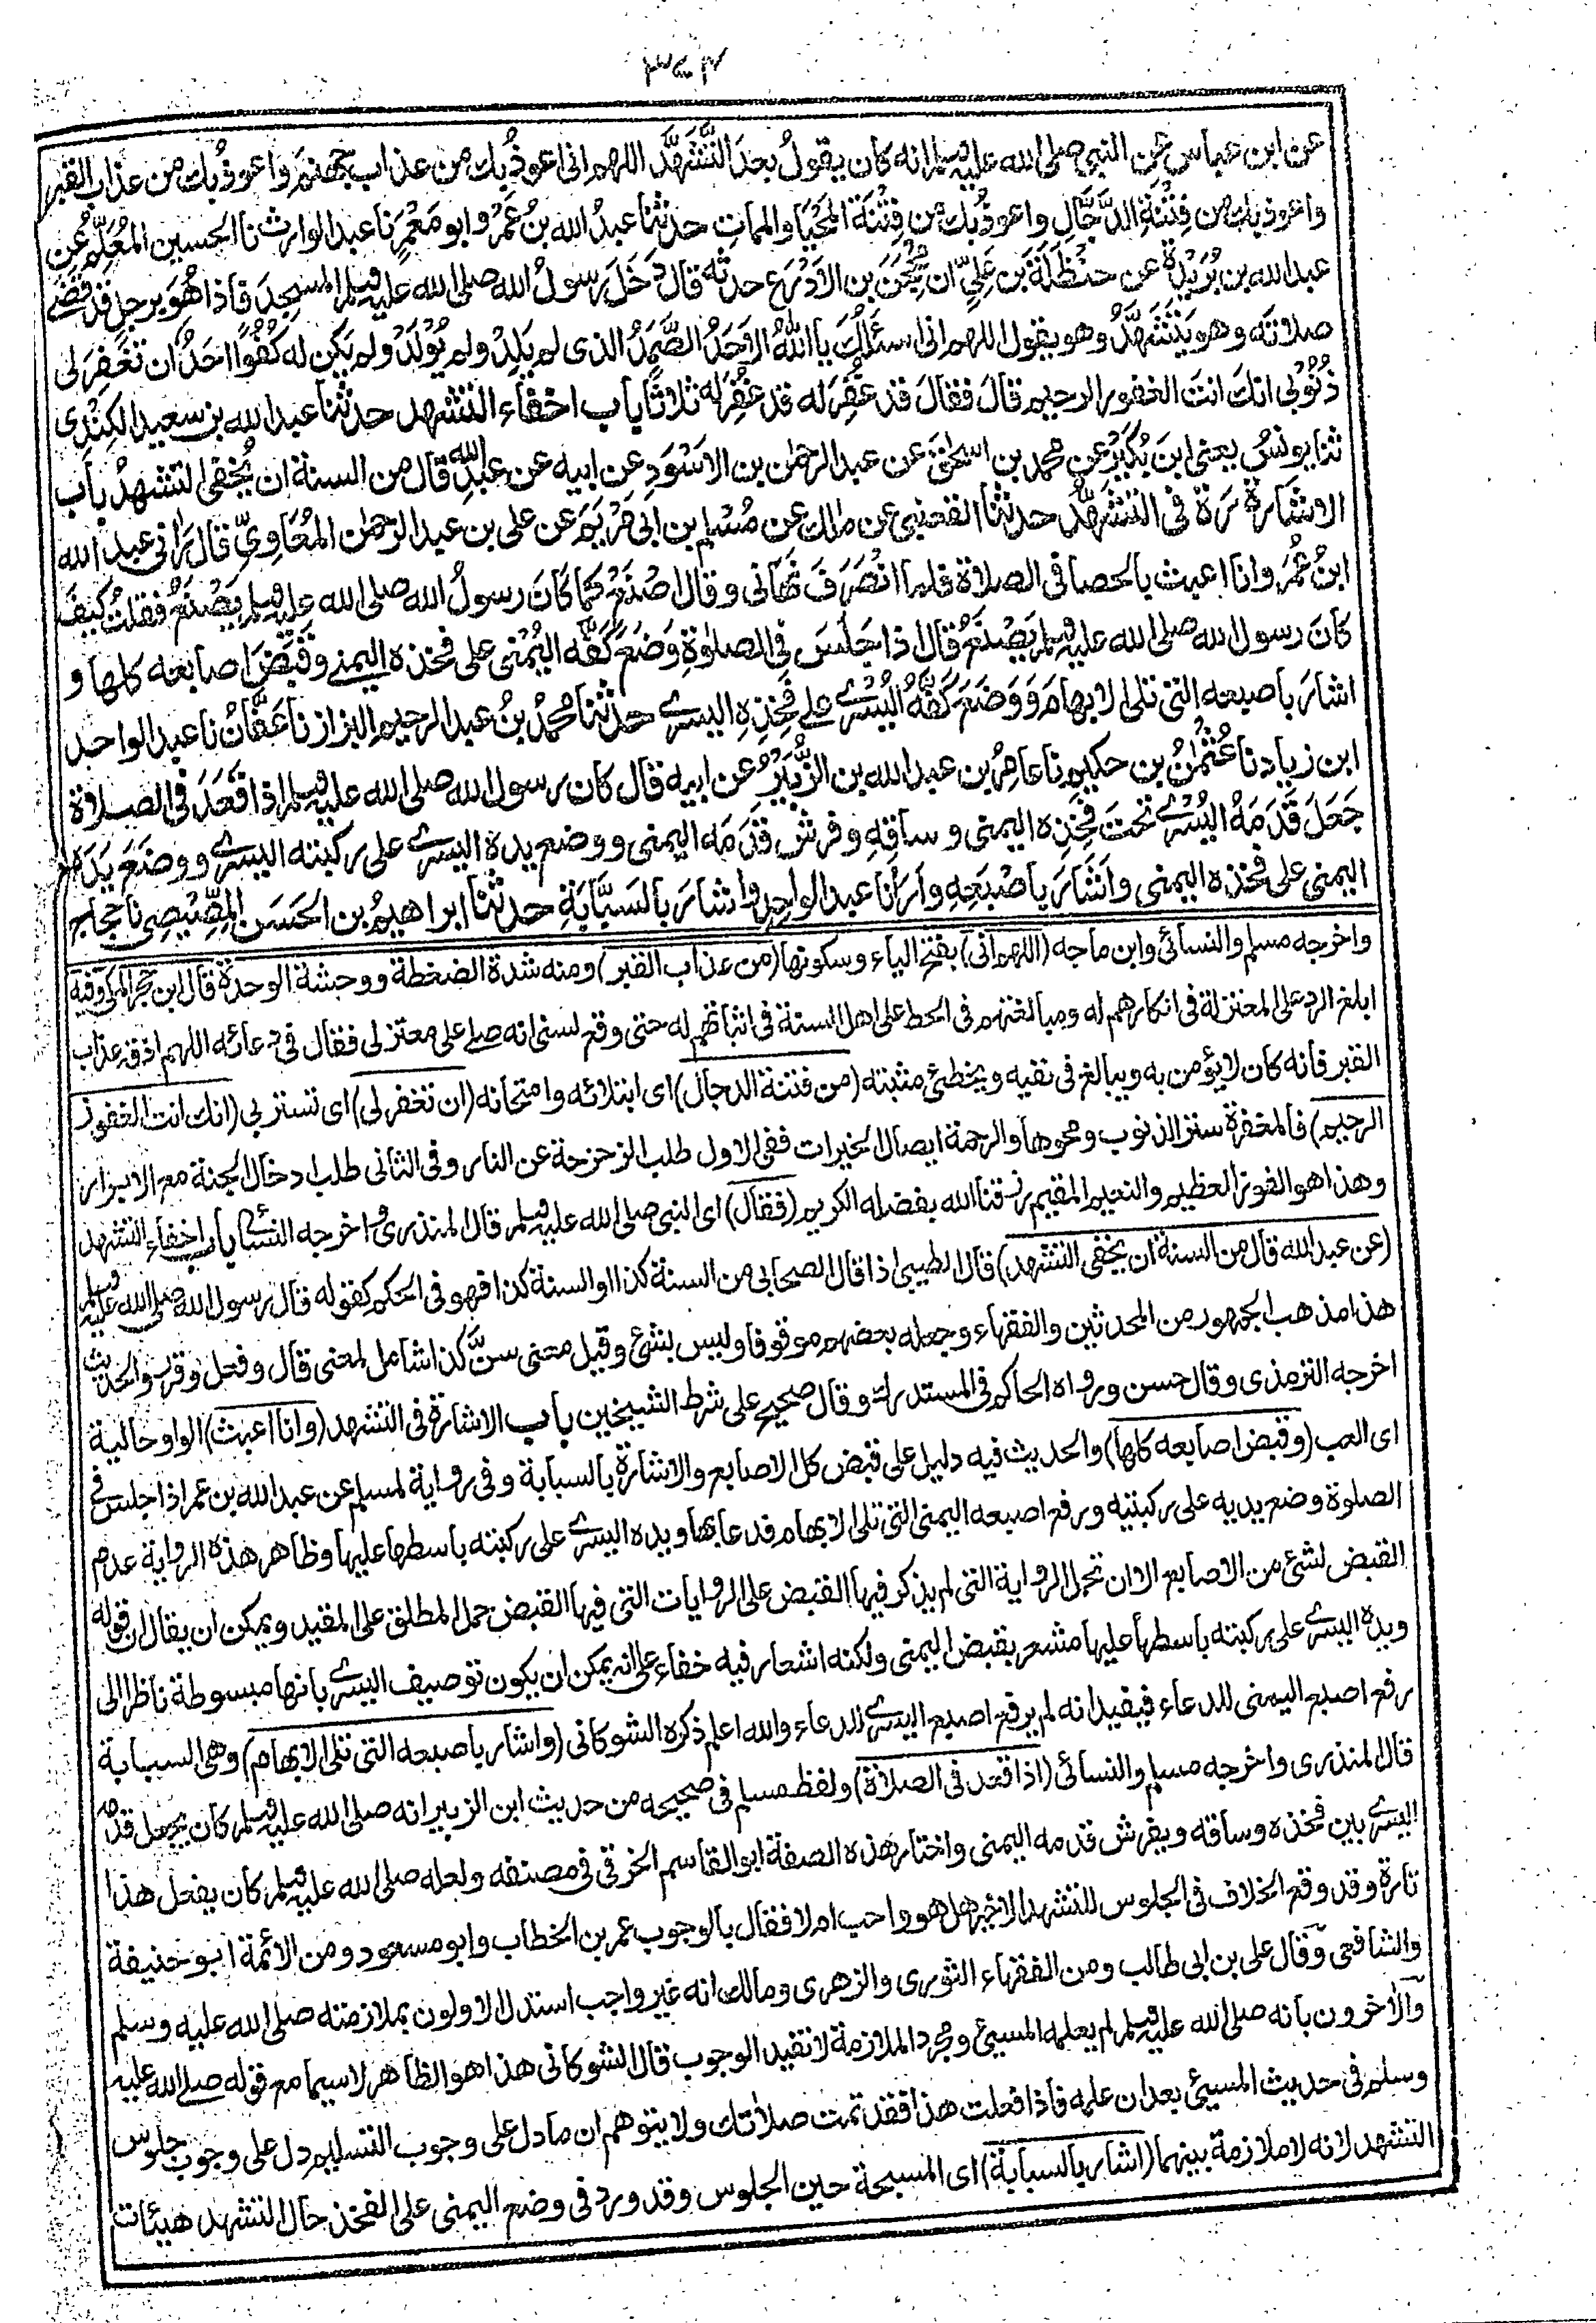 ٣٧٤
عن ابن عباس عن النبى صلى الله عليه وسلم انه كان يقولُ بعدَ التَّشَهُّدِ اللهم انى اعوذُ بك من عذاب جهنم واعوذُ بك من عذاب القبر
واعوذ بك من فِتْنَةِ الدَّجَّالِ واعوذ بك من فِتْنَةِ المَحْيَا والمماتِ حدثنا عبدُ الله بنُ عَمْرٍو ابو مَعْمَرٍ نا عبد الوارث نا الحسين المُعَلِّمُ عن
عبد الله بن بُرَيْدَةَ عن حَنْظَلَةَ بن عَلِيٍّ ان مِحْجَنَ بن الاَدْرَعِ حدثه قال دَخَلَ رسولُ الله صلى الله عليه وسلم المسجدَ فاذا هُوَ برجل قد قضے
صلاتَه وهو يَتَشَهَّدُ وهو يقول اللهم انى اسئلُكَ يا اللهُ الاَحَدُ الصَّمَدُ الذى لم يَلِدْ ولم يُوْلَدْ ولم يَكن له كُفُوًا احدٌ ان تَغْفِرَ لى
ذُنُوْبِى انكَ انتَ الغفور الرحيم قالَ فقالَ قد غُفِرَ له قد غُفِرَ له ثلاثًا باب اخفاء التشهد حدثنا عبد الله بن سعيد الكِنْدِى
ثنا يونسُ يعنى ابنَ بُكَيْرٍ عن محمد بن اسحٰق عن عبد الرحمٰن بن الاَسْوَدِ عن ابيه عن عبد الله قال من السنة ان يُخْفَى التشهدُ باب
الاشارة فى التشهد حدثنا القعنبى عن مالك عن مُسْلِمِ بن ابى مَرْيَمَ عن على بن عبد الرحمٰن المُعَاوِىِّ قال رَاٰنى عبد الله
ابنُ عُمَرَ وانا اعبث بالحصا فى الصلاة فلما انْصَرَفَ نَهَانى وقال اصْنَعْ كما كَانَ رسولُ الله صلى الله عليه وسلم يَصْنَعُ فقلت كيفَ
كانَ رسول الله صلى الله عليه وسلم يَصْنَعُ قال اذا جَلَسَ فى الصلٰوةِ وَضَعَ كَفَّه اليُمْنٰى على فخذه اليمنے وقَبَضَ اصابعَه كلها و
اشارَ باصبعه التى تلى الابهامَ وَوَضَعَ كَفَّهُ اليُسْرٰے علے فَخِذِهِ اليسرے حدثنا محمدُ بنُ عبد الرحيم البزاز نا عَفَّانُ نا عبد الواحد
ابن زياد نا عُثْمٰنُ بن حكيم نا عامِرُ بن عبد الله بن الزُّبَيْرِ عن ابيه قال كان رسول الله صلى الله عليه وسلم اذا قَعَدَ فى الصلاة
جَعَلَ قَدَمَهُ اليُسْرٰے تحتَ فَخِذِه اليمنى وساقِهِ وفرشَ قَدَمَه اليمنى ووضع يده اليسرے على ركبته اليسرے ووضَعَ يَدَه
اليمنى على فخذه اليمنى واَشَارَ باصْبَعِهِ واَرَانا عبد الواحد واشارَ بالسَّبَّابَةِ حدثنا ابراهيمُ بن الحَسَن المِصِّيْصِى نا حجاج
واخرجه مسلم والنسائى وابن ماجه (اللهم انى) بفتح الياء وسكونها (من عذاب القبر) ومنه شدة الضغطة ووحشة الوحدة قال ابن حجر المكى وفيه
ابلغ الرد على المعتزلة فى انكارهم له ومبالغتهم فى الحط على اهل السنة فى اثباتهم له حتى وقع لسنى انه صلے على معتزلى فقال فى دعائه اللهم اذقه عذاب
القبر فانه كان لا يؤمن به ويبالغ فى نفيه ويخطئ مثبته (من فتنة الدجال) اى ابتلائه وامتحانه (ان تغفر لى) اى تستر بى (انك انت الغفور
الرحيم) فالمغفرة ستر الذنوب ومحوها والرحمة ايصال الخيرات ففى الاول طلب الزحزحة عن النار وفى الثانى طلب ادخال الجنة مع الابرار
وهذا هو الفوز العظيم والنعيم المقيم رزقنا الله بفضله الكريم (فقال) اى النبى صلى الله عليه وسلم قال المنذرى واخرجه النسائى باب اخفاء التشهد
(عن عبد الله قال من السنة ان يخفى التشهد) قال الطيبى اذا قال الصحابى من السنة كذا او السنة كذا فهو فى الحكم كقوله قال رسول الله صلى الله عليه وسلم
هذا مذهب الجمهور من المحدثين والفقهاء وجعله بعضهم موقوفا وليس بشئ وقيل معنى سنَّ كذا شامل لمعنى قال وفعل وقرر والحديث
اخرجه الترمذى وقال حسن ورواه الحاكم فى المستدرك وقال صحيح على شرط الشيخين باب الاشارة فى التشهد (وانا اعبث) الواو حالية
اى العب (وقبض اصابعه كلها) والحديث فيه دليل على قبض كل الاصابع والاشارة بالسبابة وفى رواية لمسلم عن عبد الله بن عمر اذا جلس فى
الصلوة وضع يديه على ركبتيه ورفع اصبعه اليمنى التى تلى الابهام فدعا بها ويده اليسرے على ركبته باسطها عليها وظاهر هذه الرواية عدم
القبض لشئ من الاصابع الا ان تحمل الرواية التى لم يذكر فيها القبض على الروايات التى فيها القبض حمل المطلق على المقيد ويمكن ان يقال ان قوله
ويده اليسرے على ركبته باسطها عليها مشعر بقبض اليمنى ولكنه اشعار فيه خفاء على انه يمكن ان يكون توصيف اليسرے بانها مبسوطة ناظرا الى
رفع اصبع اليمنى للدعاء فيفيد انه لم يرفع اصبع اليسرے للدعاء والله اعلم ذكره الشوكانى (واشار باصبعه التى تلى الابهام) وهى السبابة
قال المنذرى واخرجه مسلم والنسائى (اذا قعد فى الصلاة) ولفظ مسلم فى صحيحه من حديث ابن الزبير انه صلى الله عليه وسلم كان يجعل قدمه
اليسرے بين فخذه وساقه ويفرش قدمه اليمنى واختار هذه الصفة ابو القاسم الخرقى فى مصنفه ولعله صلى الله عليه وسلم كان يفعل هذا
تارة وقد وقع الخلاف فى الجلوس للتشهد الاخير هل هو واجب ام لا فقال بالوجوب عمر بن الخطاب وابو مسعود ومن الائمة ابو حنيفة
والشافعى وقال على بن ابى طالب ومن الفقهاء الثورى والزهرى ومالك انه غير واجب استدل الاولون بملازمته صلى الله عليه وسلم
والآخرون بانه صلى الله عليه وسلم لم يعلمه المسيئ ومجرد الملازمة لا تفيد الوجوب قال الشوكانى هذا هو الظاهر لا سيما مع قوله صلے الله عليه
وسلم فى حديث المسيئ بعد ان علمه فاذا فعلت هذا فقد تمت صلاتك ولا يتوهم ان ما دل على وجوب التسليم دل على وجوب جلوس
التشهد لانه لا ملازمة بينهما (اشار بالسبابة) اى المسبحة حين الجلوس وقد ورد فى وضع اليمنى على الفخذ حال التشهد هيئات